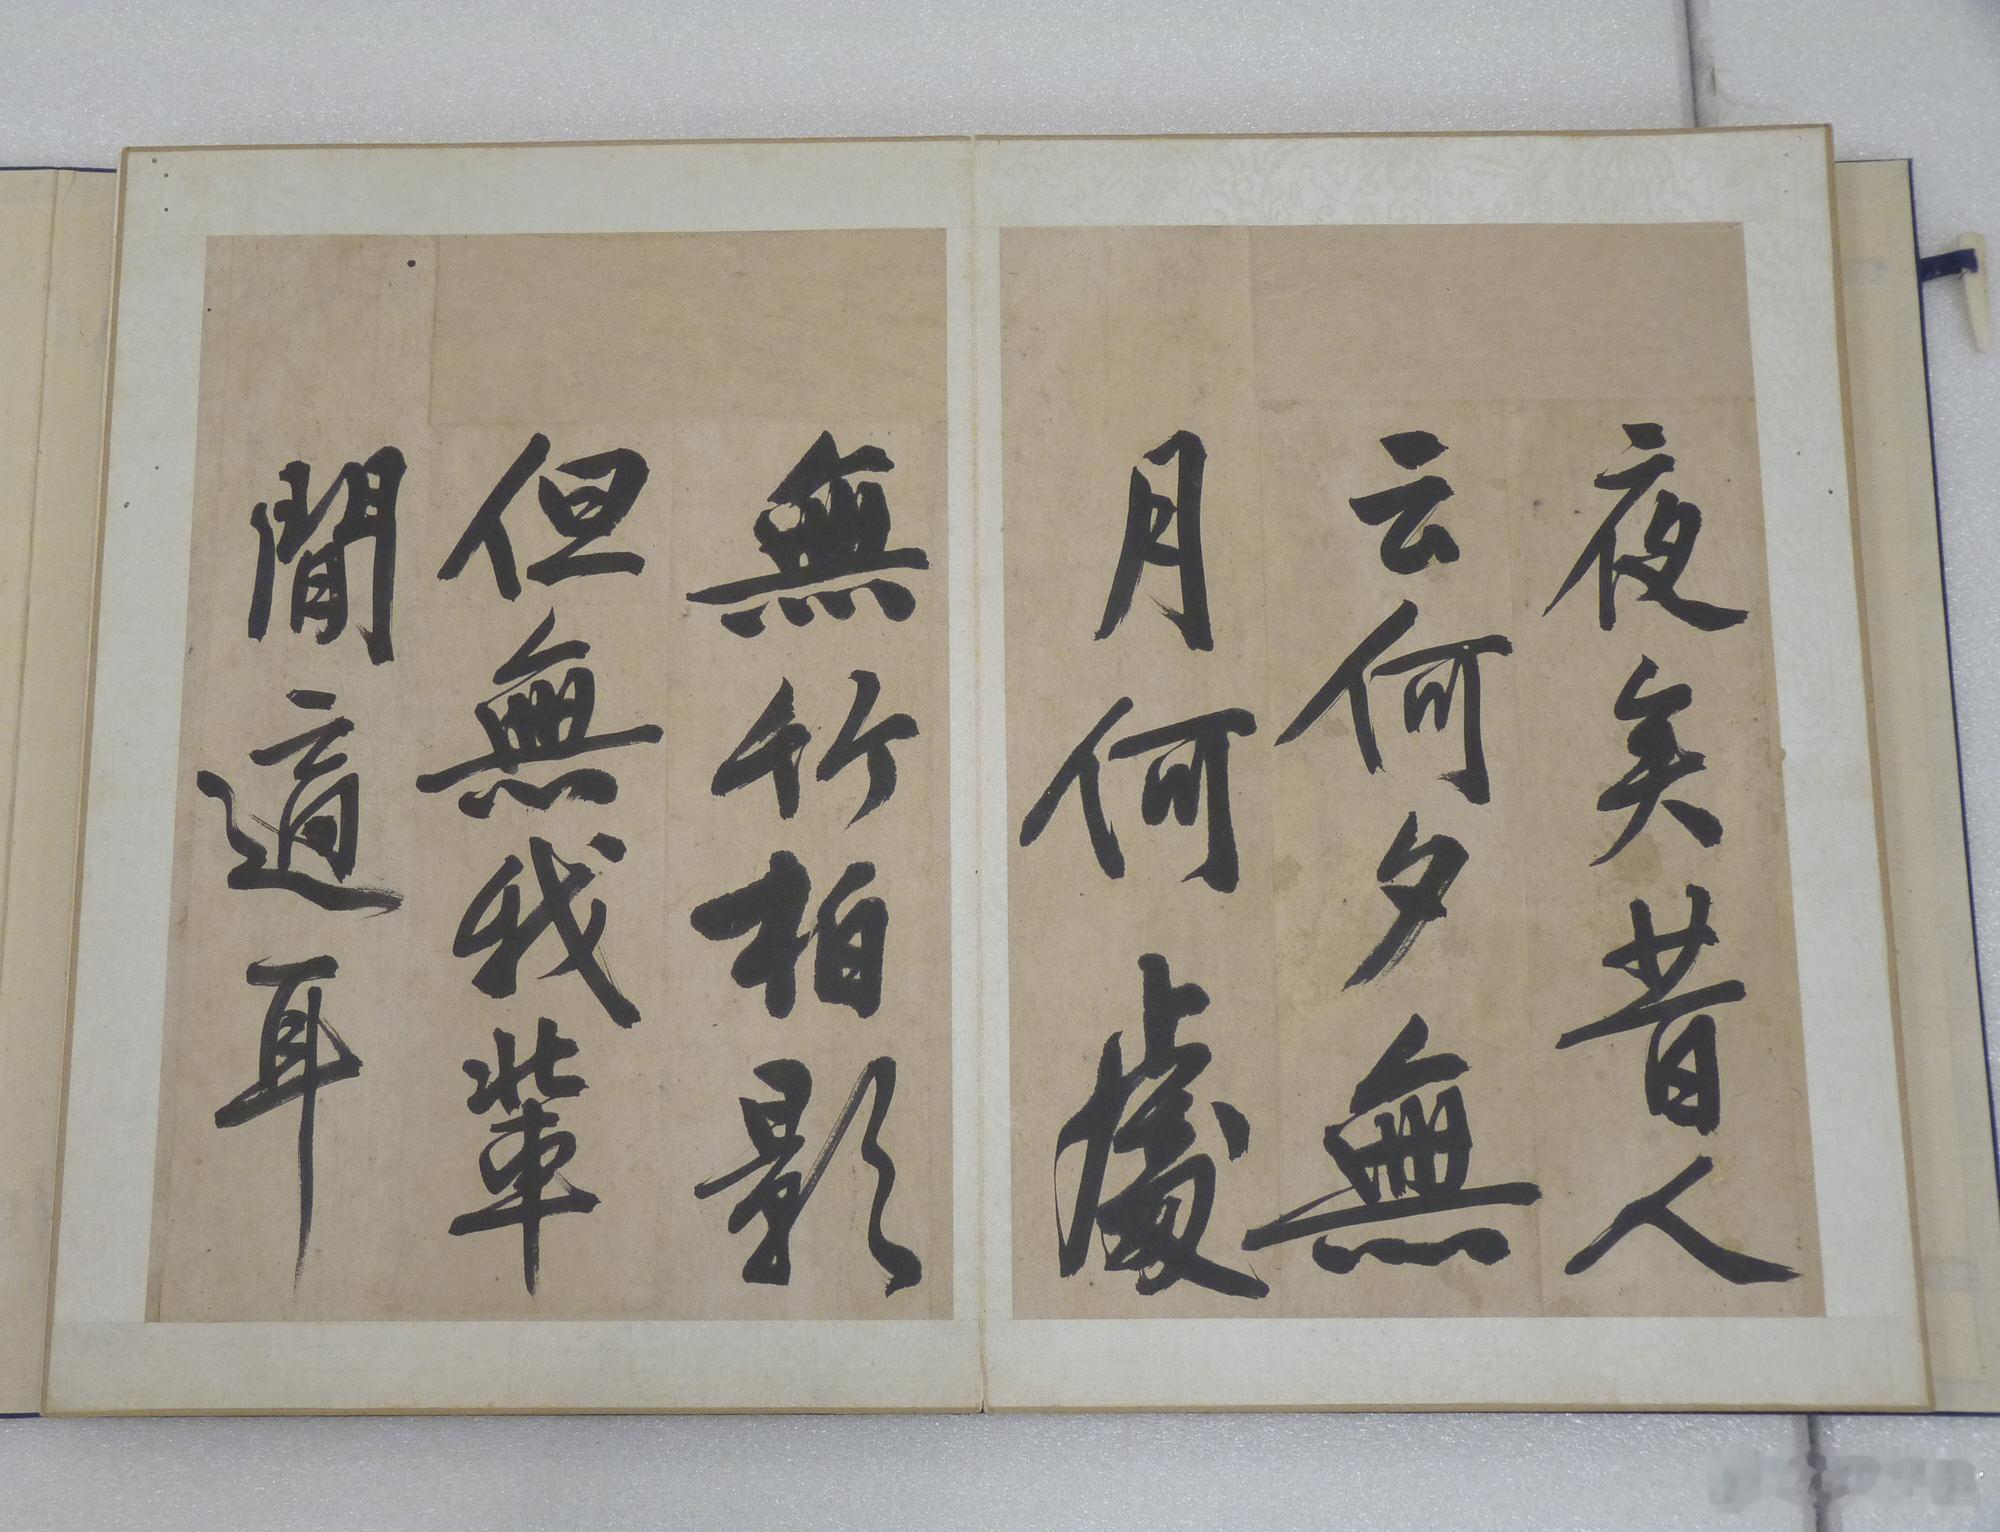 夜矣昔人
云何夕無
月何處
無竹柏影
但無我輩
閒適耳